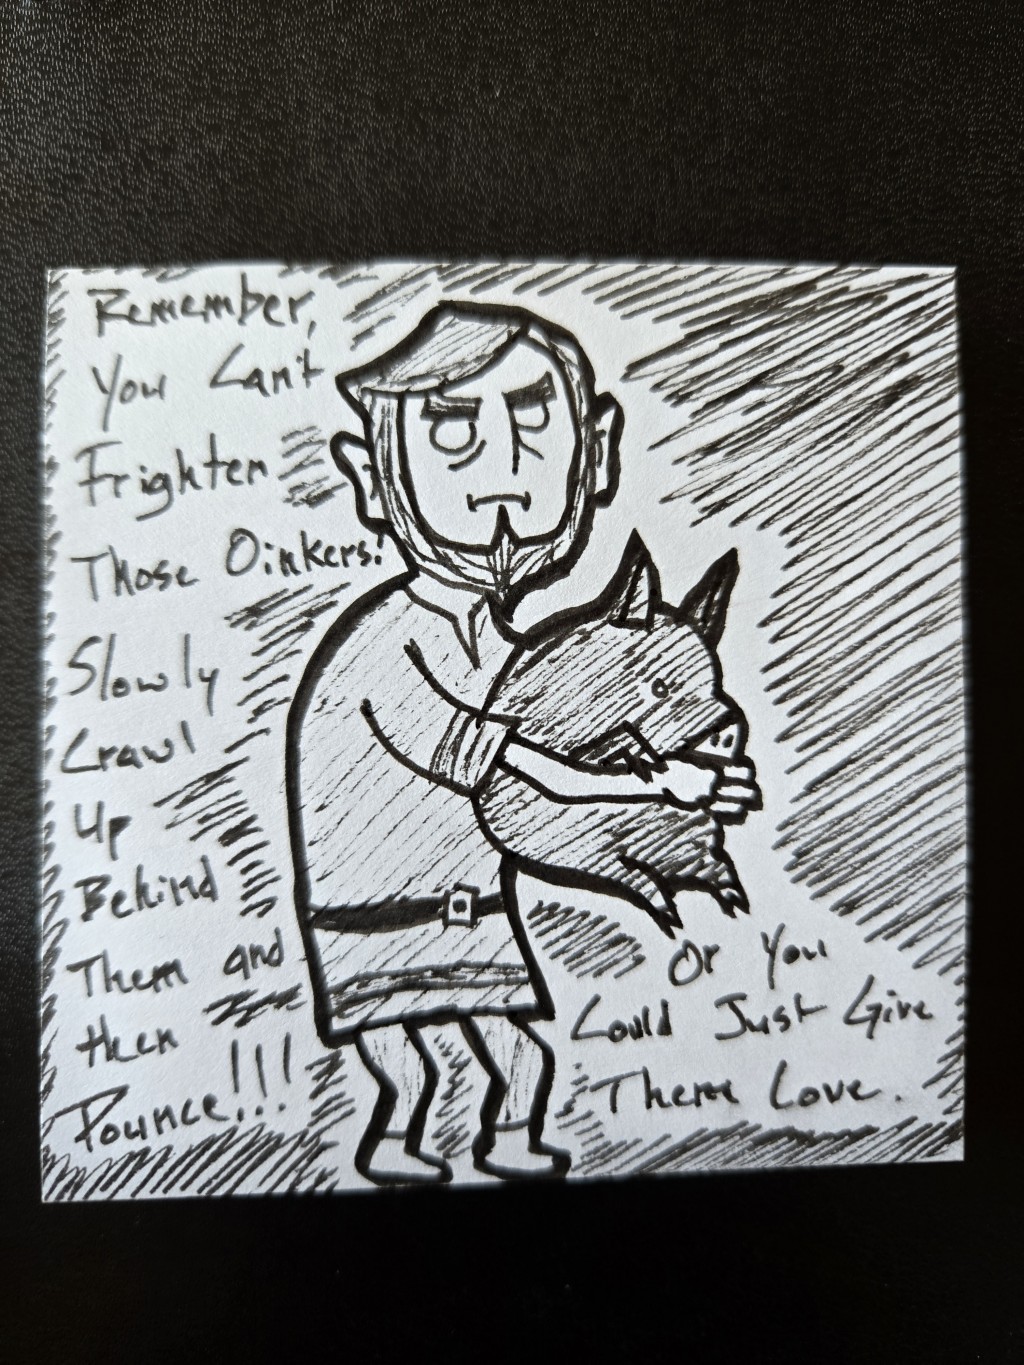 Remember,
You Can't
Frighten
Those Oinkers!
Slowly
Crawl
Up
Behind
Them and
then
Pounce!!!
Or You
Could Just Give
Them Love.